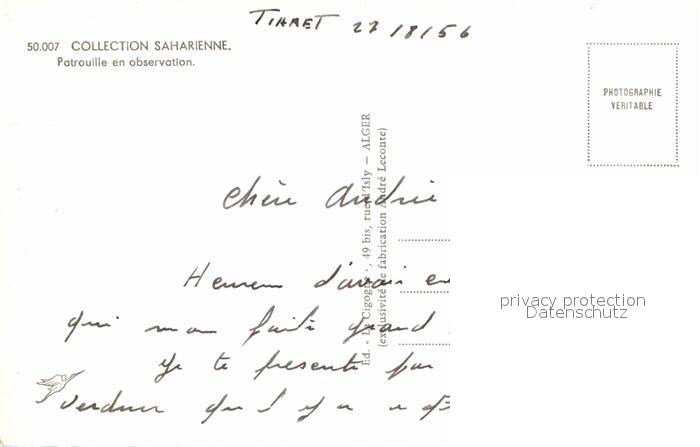 TIARET 27/8/56
50.007 COLLECTION SAHARIENNE.
Patrouille en observation.
PHOTOGRAPHIE
VÉRITABLE
Ed. « La Cigogne », 49 bis, rue d'Isly — ALGER
(exclusivité de fabrication André Leconte)
Chère Andrée
Heureux d'avoir
qui fait grand
Je te présente par
verdure que
privacy protection
Datenschutz